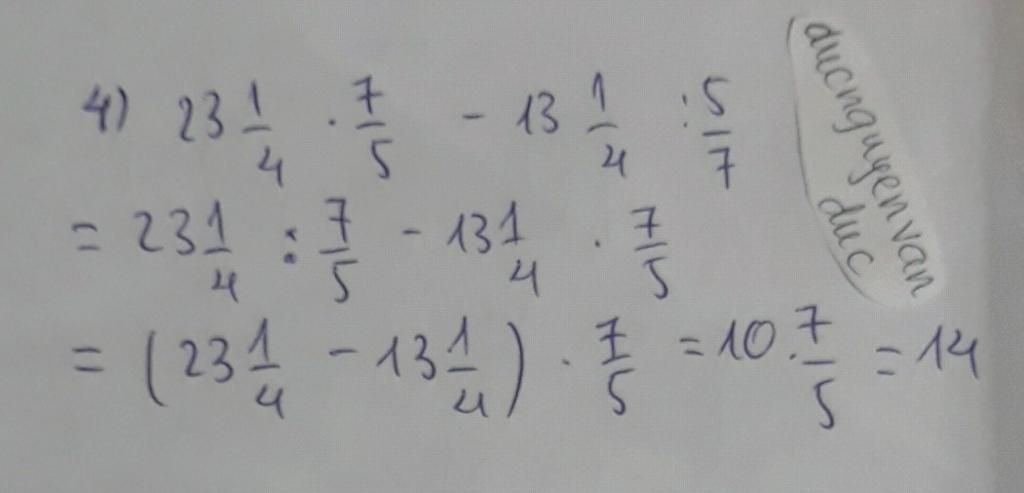 4) 23 1/4 . 7/5 - 13 1/4 : 5/7
= 23 1/4 : 7/5 - 13 1/4 . 7/5
= (23 1/4 - 13 1/4) . 7/5 = 10 . 7/5 = 14
ducnguyenvan
duc